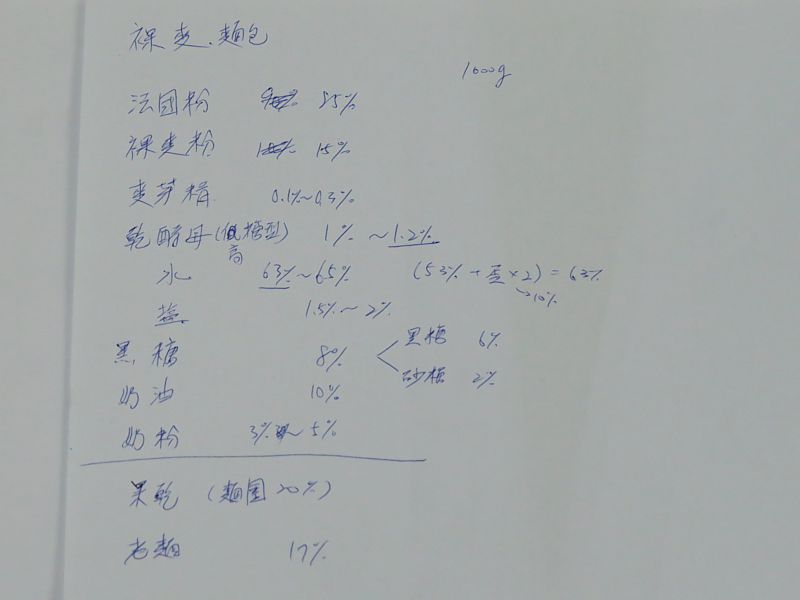 裸麥.麵包
1000g
法國粉 85%
裸麥粉 15%
麥芽精 0.1%~0.3%
乾酵母(低糖型) 1% ~1.2%
高
水 63%~65% (53% + 蛋×2) = 63%
→10%
盐 1.5%~2%
黑糖 8% 黑糖 6%
砂糖 2%
奶油 10%
奶粉 3%~5%
果乾 (麵團20%)
老麵 17%